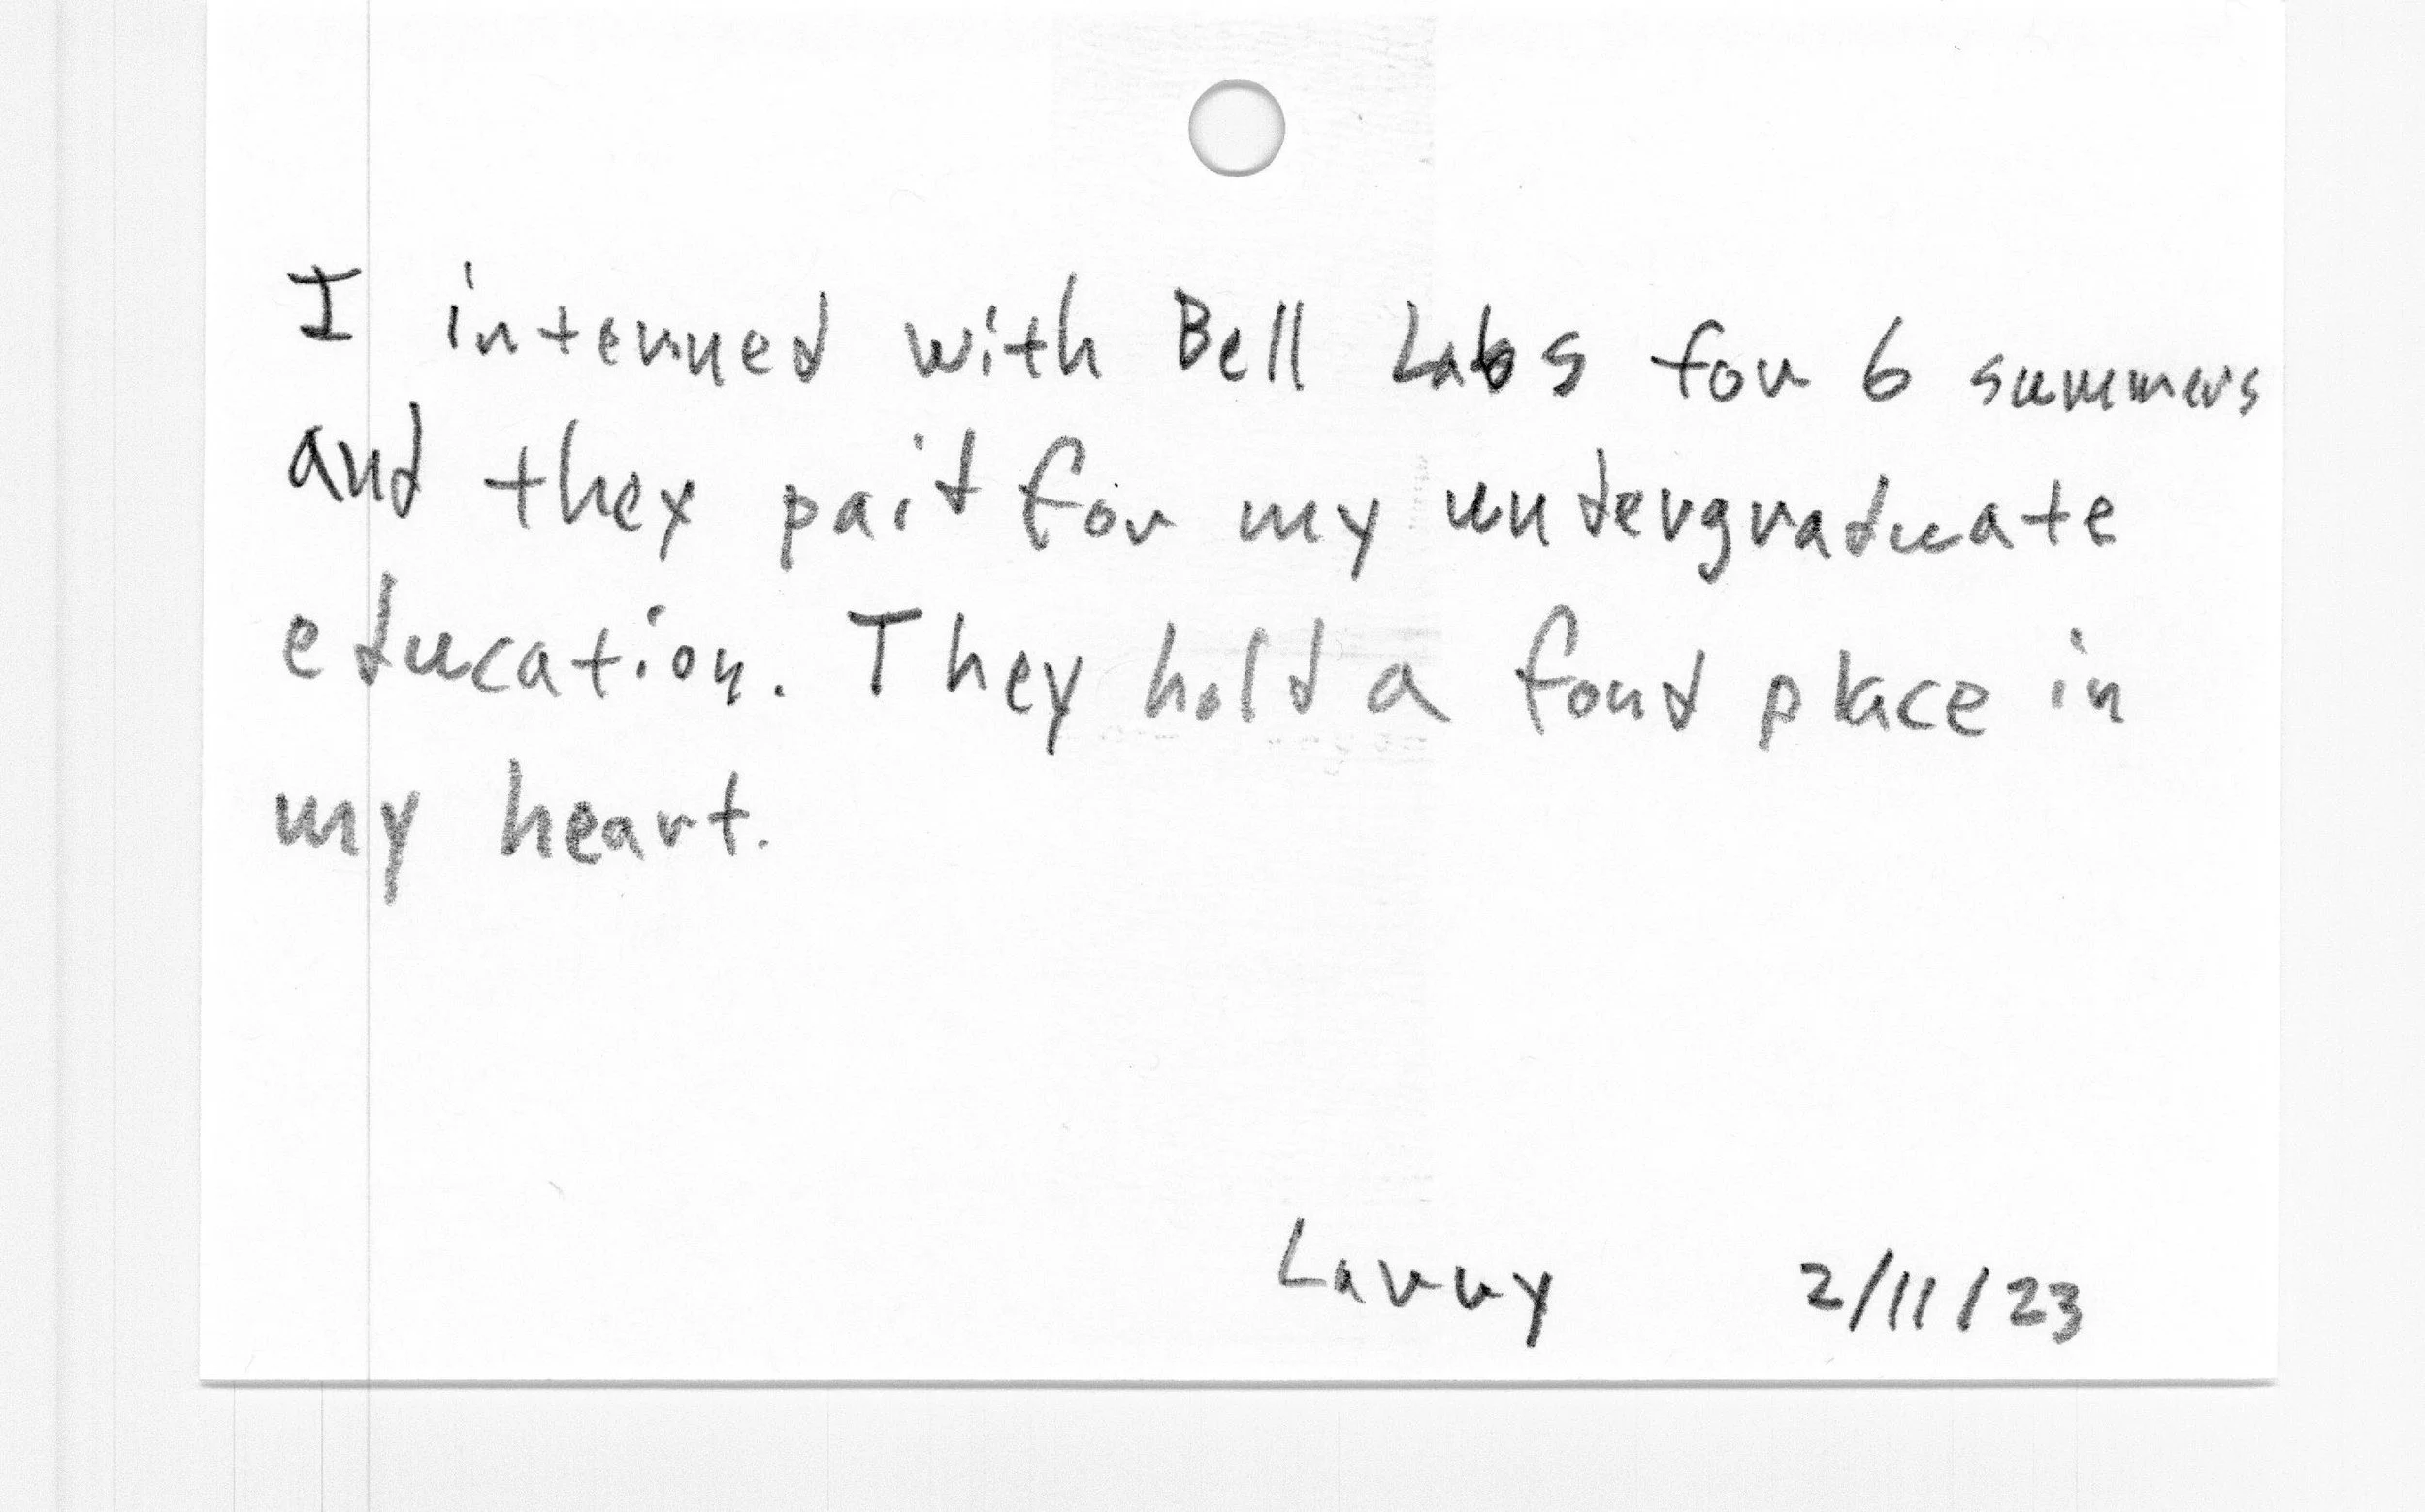 I interned with Bell Labs for 6 summers
and they paid for my undergraduate
education. They hold a fond place in
my heart.
Larry 2/11/23